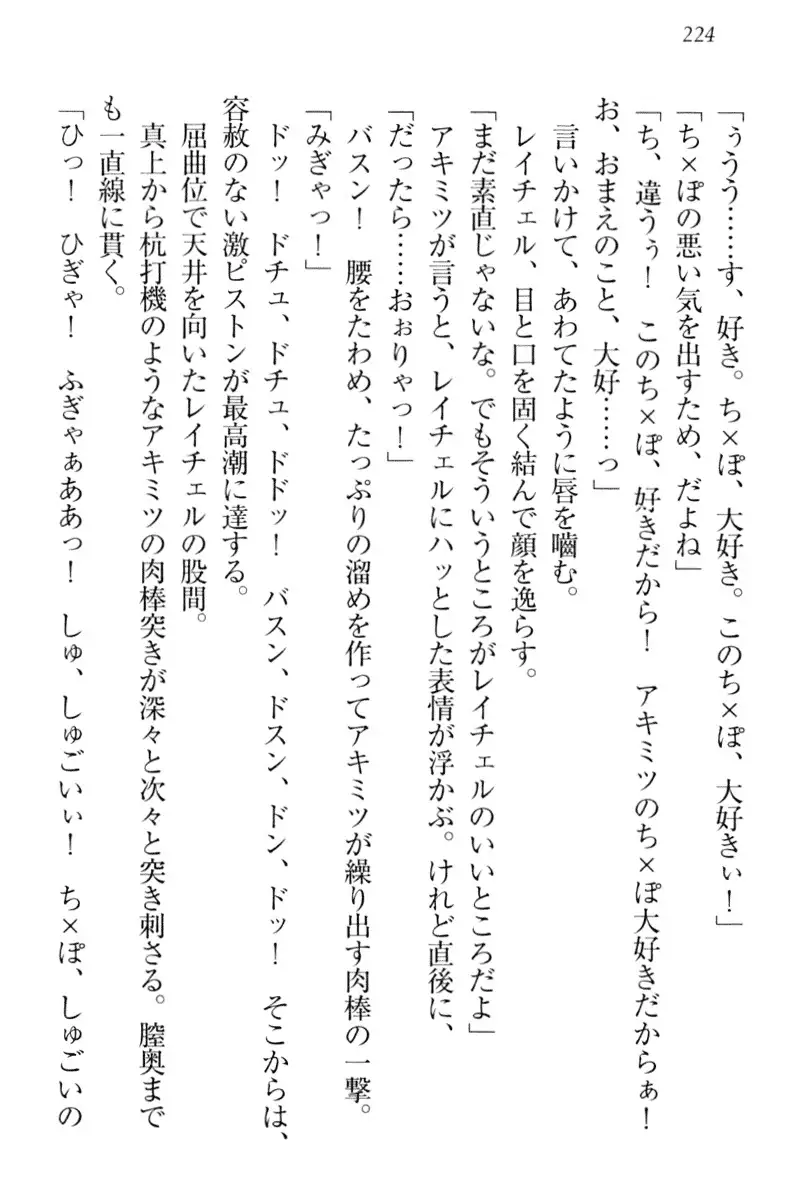 224
「ぅうう……す、好き。ち×ぽ、大好き。このち×ぽ、大好きぃ！」
「ち×ぽの悪い気を出すため、だよね」
「ち、違うぅ！　このち×ぽ、好きだから！　アキミツのち×ぽ大好きだからぁ！
お、おまえのこと、大好……っ」
　言いかけて、あわてたように唇を嚙む。
　レイチェル、目と口を固く結んで顔を逸らす。
「まだ素直じゃないな。でもそういうところがレイチェルのいいところだよ」
　アキミツが言うと、レイチェルにハッとした表情が浮かぶ。けれど直後に、
「だったら……おぉりゃっ！」
　バスン！　腰をたわめ、たっぷりの溜めを作ってアキミツが繰り出す肉棒の一撃。
「みぎゃっ！」
　ドッ！　ドチュ、ドチュ、ドドッ！　バスン、ドスン、ドン、ドッ！　そこからは、
容赦のない激ピストンが最高潮に達する。
　屈曲位で天井を向いたレイチェルの股間。
　真上から杭打機のようなアキミツの肉棒突きが深々と次々と突き刺さる。膣奥まで
も一直線に貫く。
「ひっ！　ひぎゃ！　ふぎゃぁああっ！　しゅ、しゅごいぃ！　ち×ぽ、しゅごいの